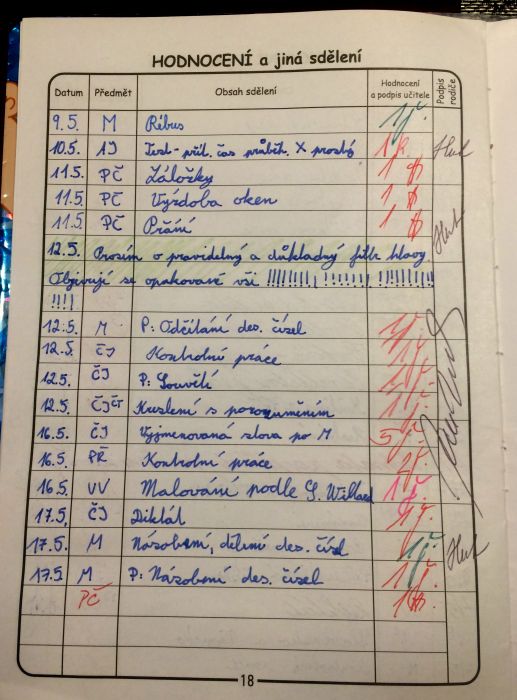 HODNOCENÍ a jiná sdělení
Datum Předmět Obsah sdělení Hodnocení a podpis učitele Podpis rodiče
9.5. M Rébus 1
10.5. AJ Test - přít. čas průběh. X prostý 1
11.5. PČ Záložky 1
11.5. PČ Výzdoba oken 1
11.5. PČ Přání 1
12.5. Prosím o pravidelný a důkladný filtr hlavy.
Objevují se opakovaně vši !!!!!!!!! !!!!!!! !!!!!!!!!!
!!!!
12.5. M P: Odčítání des. čísel 1
12.5. ČJ Kontrolní práce
12.5. ČJ P: Souvětí
12.5. ČJČT Kreslení s porozuměním 1
16.5. ČJ Vyjmenovaná slova po M 5
16.5. PŘ Kontrolní práce
16.5. VV Malování podle G. Willard 1
17.5. ČJ Diktát 1
17.5. M Násobení, dělení des. čísel 1
17.5. M P: Násobení des. čísel 1
PČ 1
18